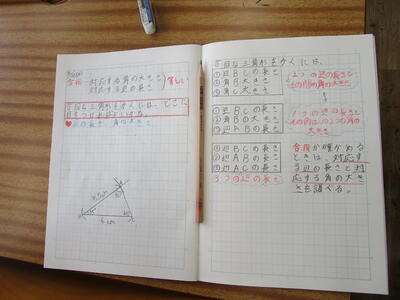 合同
対応する角の大きさ
対応する辺の長さ
等しい
合同な三角形を歩くには、どこに
目をつければよいか。
辺の長さ 角の大きさ
6cm
合同な三角形をかくには、
①辺BCの長さ
②角Bの大きさ
③角Cの大きさ
①辺BCの長さ
②角Bの大きさ
③辺ABの長さ
①辺BCの長さ
②辺ABの長さ
③辺ACの長さ
3つの辺の長さ
2つの辺の長さと
その間の角の大きさ
1つの辺の長さと
その両はしの2つの角の
大きさ
合同か確かめる
ときは、対応す
る辺の長さと対
応する角の大き
さを調べる。